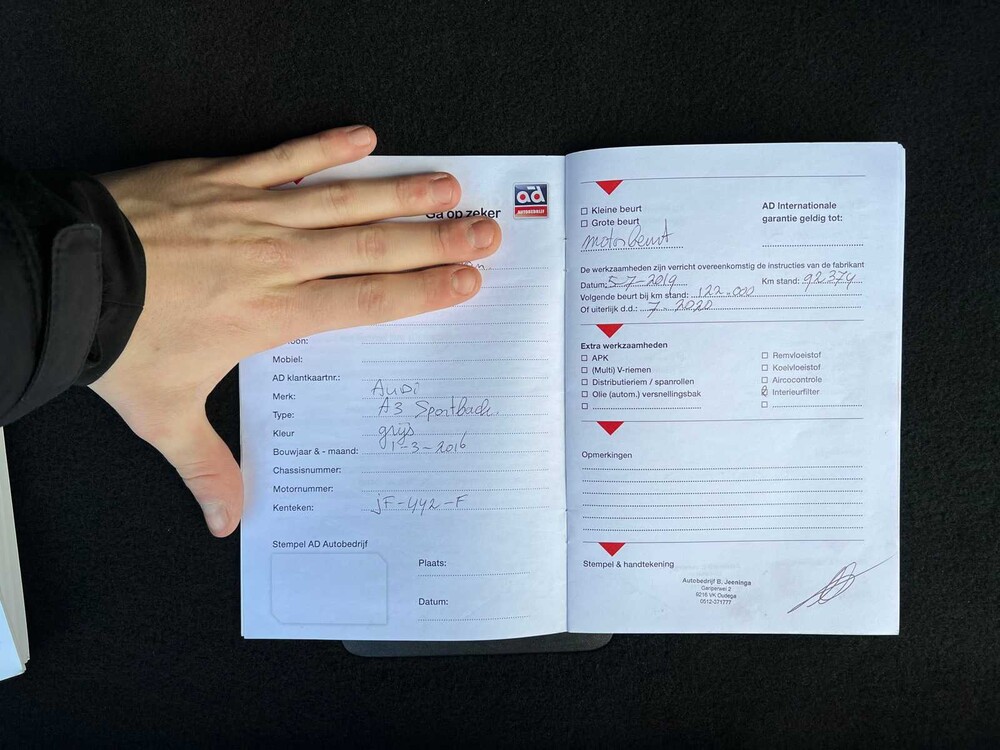 Ga op zeker
ad
AUTOBEDRIJF
Mobiel:
AD klantkaartnr.:
Merk: Audi
Type: A3 Sportback.
Kleur grijs
Bouwjaar & - maand: 1-3-2016
Chassisnummer:
Motornummer:
Kenteken: jF-442-F
Stempel AD Autobedrijf
Plaats:
Datum:
Kleine beurt
Grote beurt
motorbeurt
AD Internationale
garantie geldig tot:
De werkzaamheden zijn verricht overeenkomstig de instructies van de fabrikant
Datum: 5-7-2019 Km stand: 92374
Volgende beurt bij km stand: 122.000
Of uiterlijk d.d.: 7-2020
Extra werkzaamheden
APK
(Multi) V-riemen
Distributieriem / spanrollen
Olie (autom.) versnellingsbak
Remvloeistof
Koelvloeistof
Aircocontrole
Interieurfilter
Opmerkingen
Stempel & handtekening
Autobedrijf B. Jeeninga
9216 VK Oudega
0512-371777